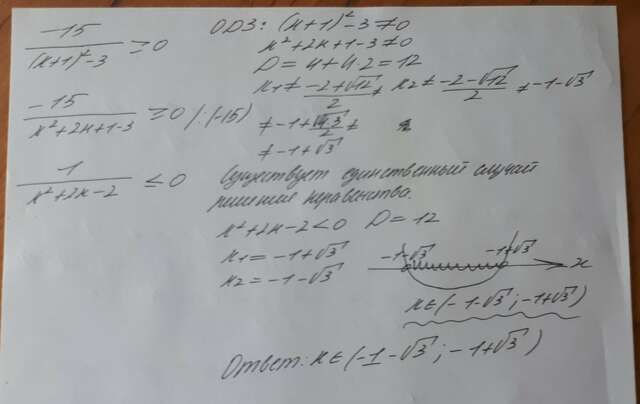 -15/((x+1)²-3) ≥ 0
-15/(x²+2x+1-3) ≥ 0 | :(-15)
1/(x²+2x-2) ≤ 0
ОДЗ: (x+1)²-3≠0
x²+2x+1-3≠0
D=4+4·2=12
x₁≠(-2+√12)/2≠ x₂≠(-2-√12)/2 ≠-1-√3
≠-1+√3
Существует единственный случай
решения неравенства.
x²+2x-2<0 D=12
x₁=-1+√3
x₂=-1-√3
-1-√3 -1+√3 x
x∈(-1-√3; -1+√3)
Ответ: x∈(-1-√3; -1+√3)